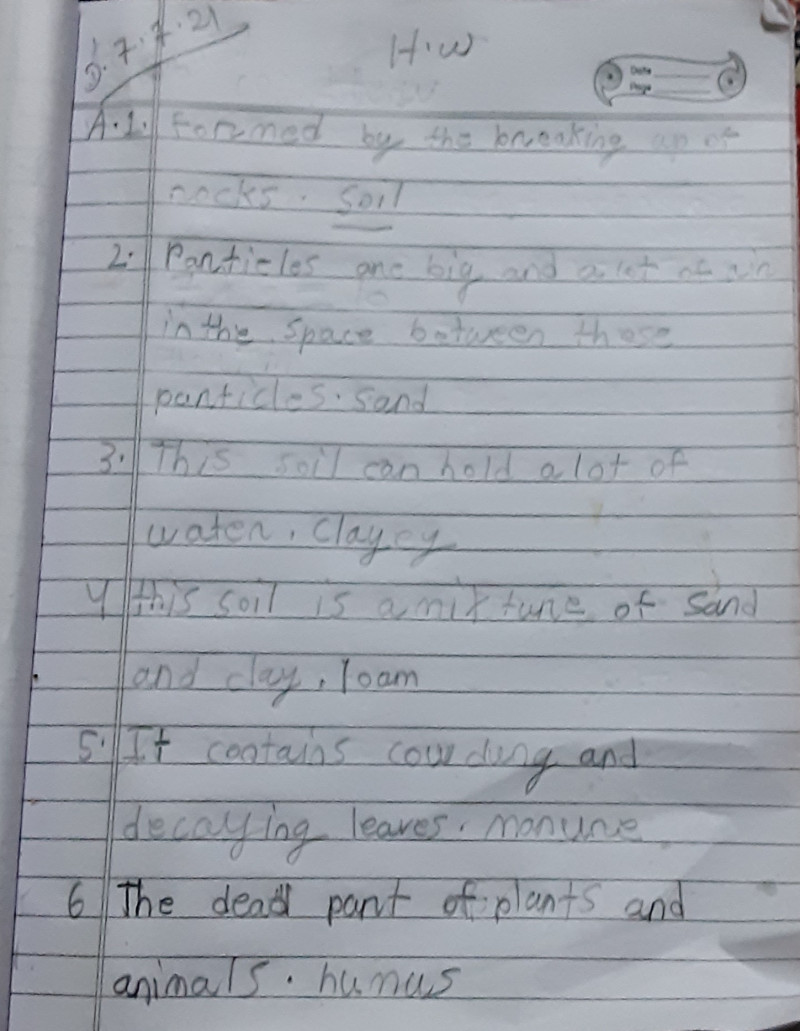 D. 7.7.21
H.W
Date
Page
A.1. Formed by the breaking up of
rocks. Soil
2. Particles are big and a lot of air
in the space between these
particles. sand
3. This soil can hold a lot of
water. Clayey
4 this soil is a mixture of sand
and clay. loam
5. It contains cow dung and
decaying leaves. manure
6 The dead part of plants and
animals. humus